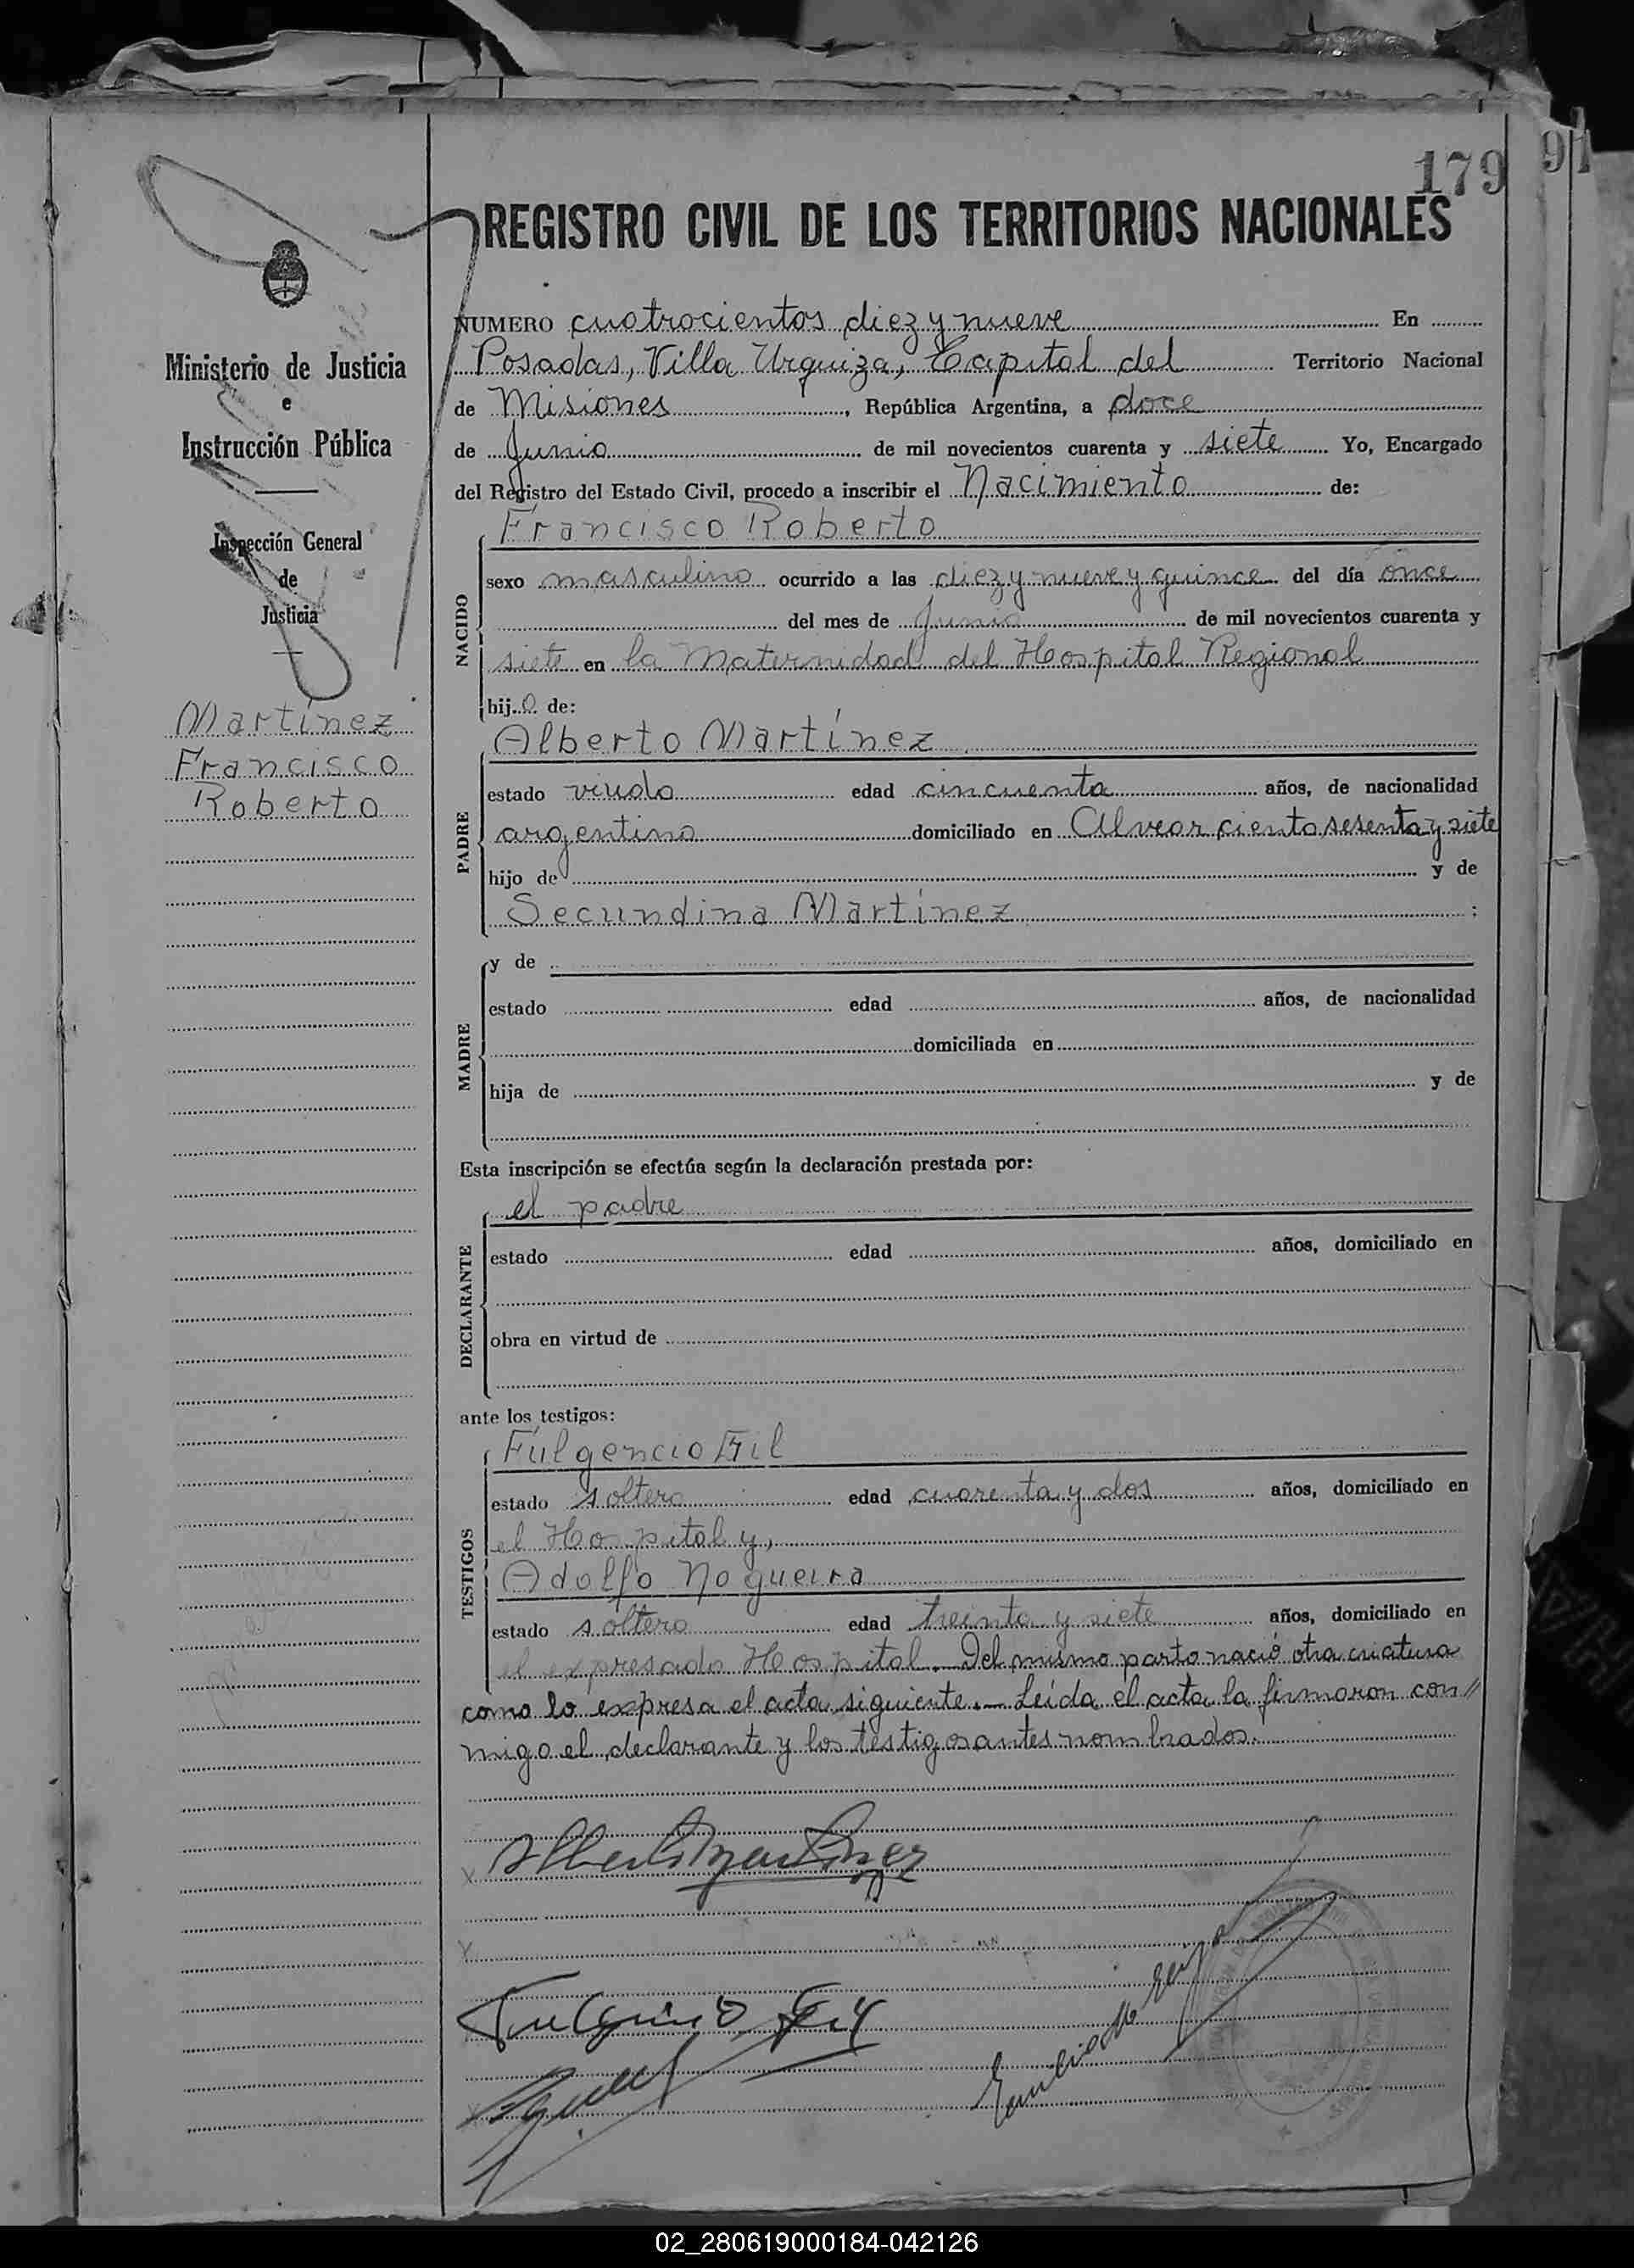 179
91
REGISTRO CIVIL DE LOS TERRITORIOS NACIONALES
Ministerio de Justicia
e
Instrucción Pública
Inspección General
de
Justicia
Martínez
Francisco
Roberto
NUMERO cuatrocientos diez y nueve En
Posadas, Villa Urquiza, Capital del Territorio Nacional
de Misiones, República Argentina, a doce
de Junio de mil novecientos cuarenta y siete Yo, Encargado
del Registro del Estado Civil, procedo a inscribir el Nacimiento de:
NACIDO
Francisco Roberto
sexo masculino ocurrido a las diez y nueve y quince del día once
del mes de Junio de mil novecientos cuarenta y
siete en la Maternidad del Hospital Regional
hij o de:
PADRE
Alberto Martínez
estado viudo edad cincuenta años, de nacionalidad
argentino domiciliado en Alvear ciento sesenta y siete
hijo de y de
Secundina Martínez ;
MADRE
y de
estado edad años, de nacionalidad
domiciliada en
hija de y de
Esta inscripción se efectúa según la declaración prestada por:
DECLARANTE
el padre
estado edad años, domiciliado en
obra en virtud de
ante los testigos:
TESTIGOS
Fulgencio Gil
estado soltero edad cuarenta y dos años, domiciliado en
el Hospital y,
Adolfo Nogueira
estado soltero edad treinta y siete años, domiciliado en
el expresado Hospital.- Del mismo parto nació otra criatura
como lo expresa el acta siguiente.- Leída el acta la firmaron con//
migo el declarante y los testigos antes nombrados.
Alberto Martínez
Fulgencio Gil
02_280619000184-042126